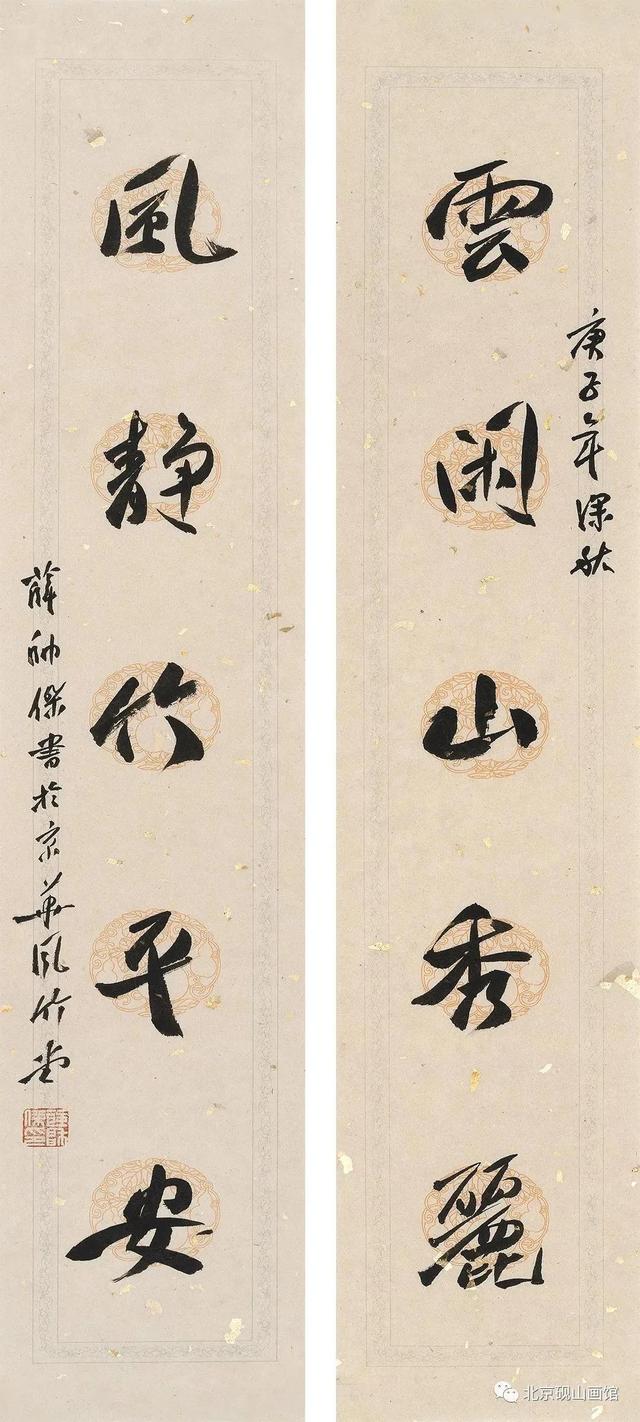 庚子年深秋
雲闲山秀麗
風静竹平安
薛帅傑書於京華風竹堂
北京砚山画馆